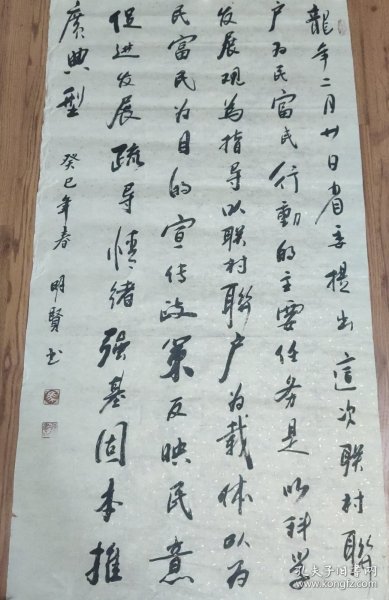 龍年二月廿日省委提出這次联村聯
户为民富民行動的主要任务是以科学
发展观为指导以联村聯户为載体以为
民富民为目的宣传政策反映民意
促进发展疏导情绪强基固本推
廣典型
癸巳年春明賢书
孔夫子旧书网